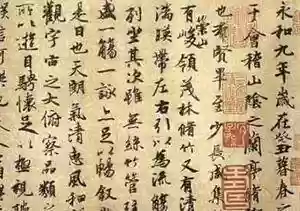 永和九年歲在癸丑暮春之
于會稽山陰之蘭亭脩
也羣賢畢至少長咸集
有崇山峻領茂林脩竹又有清
湍暎帶左右引以為流觴
列坐其次雖無絲竹管
盛一觴一詠亦足以暢敘
是日也天朗氣清惠風和
觀宇宙之大俯察品類
所以遊目騁懷足以極視
信可樂也